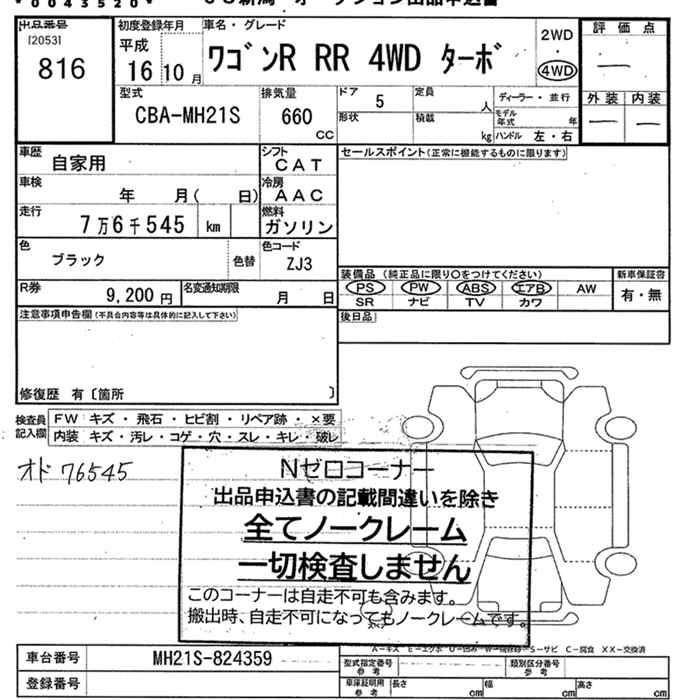 *0043520*
出品番号
[2053]
816
初度登録年月
平成
16 10月
車名・グレード
ワゴンR RR 4WD ターボ
2WD
・
4WD
評価点
―
外装 内装
― ―
型式
CBA-MH21S
排気量
660
cc
ドア
5
定員
人
形状
積載
kg
ディーラー・並行
モデル年式
年
ハンドル 左・右
車歴
自家用
シフト
CAT
セールスポイント(正常に機能するものに限ります)
車検
年 月( 日)
冷房
AAC
走行
7万6千545 km
燃料
ガソリン
色
ブラック
色替
色コード
ZJ3
R券
9,200円
名変通知期限
月 日
装備品(純正品に限り○をつけてください)
PS PW ABS エアB AW
SR ナビ TV カワ
新車保証書
有・無
注意事項申告欄(不具合内容等は具体的に記入して下さい)
後日品
修復歴 有〔箇所 〕
検査員
記入欄
FW キズ・飛石・ヒビ割・リペア跡・×要
内装 キズ・汚レ・コゲ・穴・スレ・キレ・破レ
オド 76545
Nゼロコーナー
出品申込書の記載間違いを除き
全てノークレーム
一切検査しません
このコーナーは自走不可も含みます。
搬出時、自走不可になってもノークレームです。
A-キズ E-エクボ U-凹み S-サビ C-腐食 XX-交換済
車台番号
MH21S-824359
型式指定番号
参考
類別区分番号
参考
登録番号
車庫証明用
参考
長さ cm 幅 cm 高さ cm